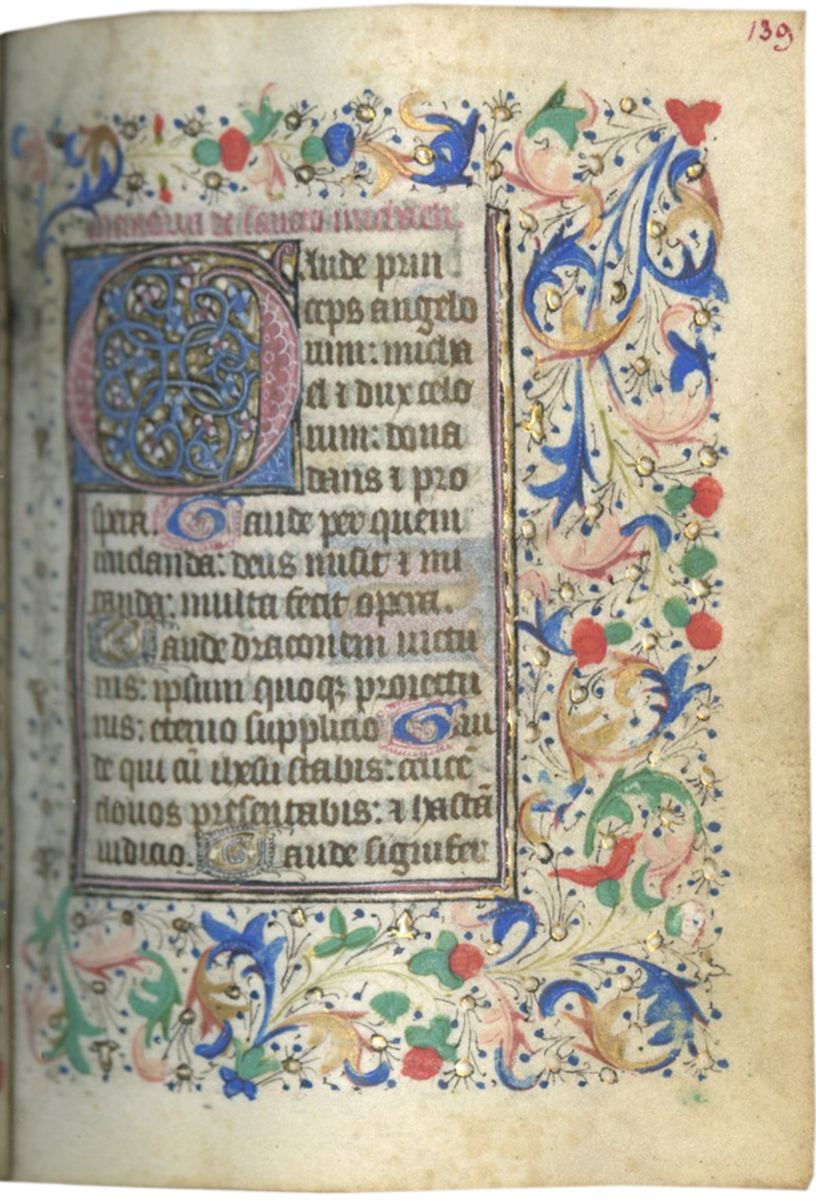 139
memoria de sancto michaeli.
Gaude prin
ceps angelo
rum: micha
el ⁊ dux celo
rum: dona
dans ⁊ pro
spera. Gaude per quem
miclanda: deus misit ⁊ mi
randa: multa fecit opera.
Gaude draconem uictu
rus: ipsum quoqꝫ proiectu
rus: eterno supplicio Gau
de qui cū ihesu stabis: cruce
clouos presentabis: ⁊ hastā
iudicio. Gaude signifer